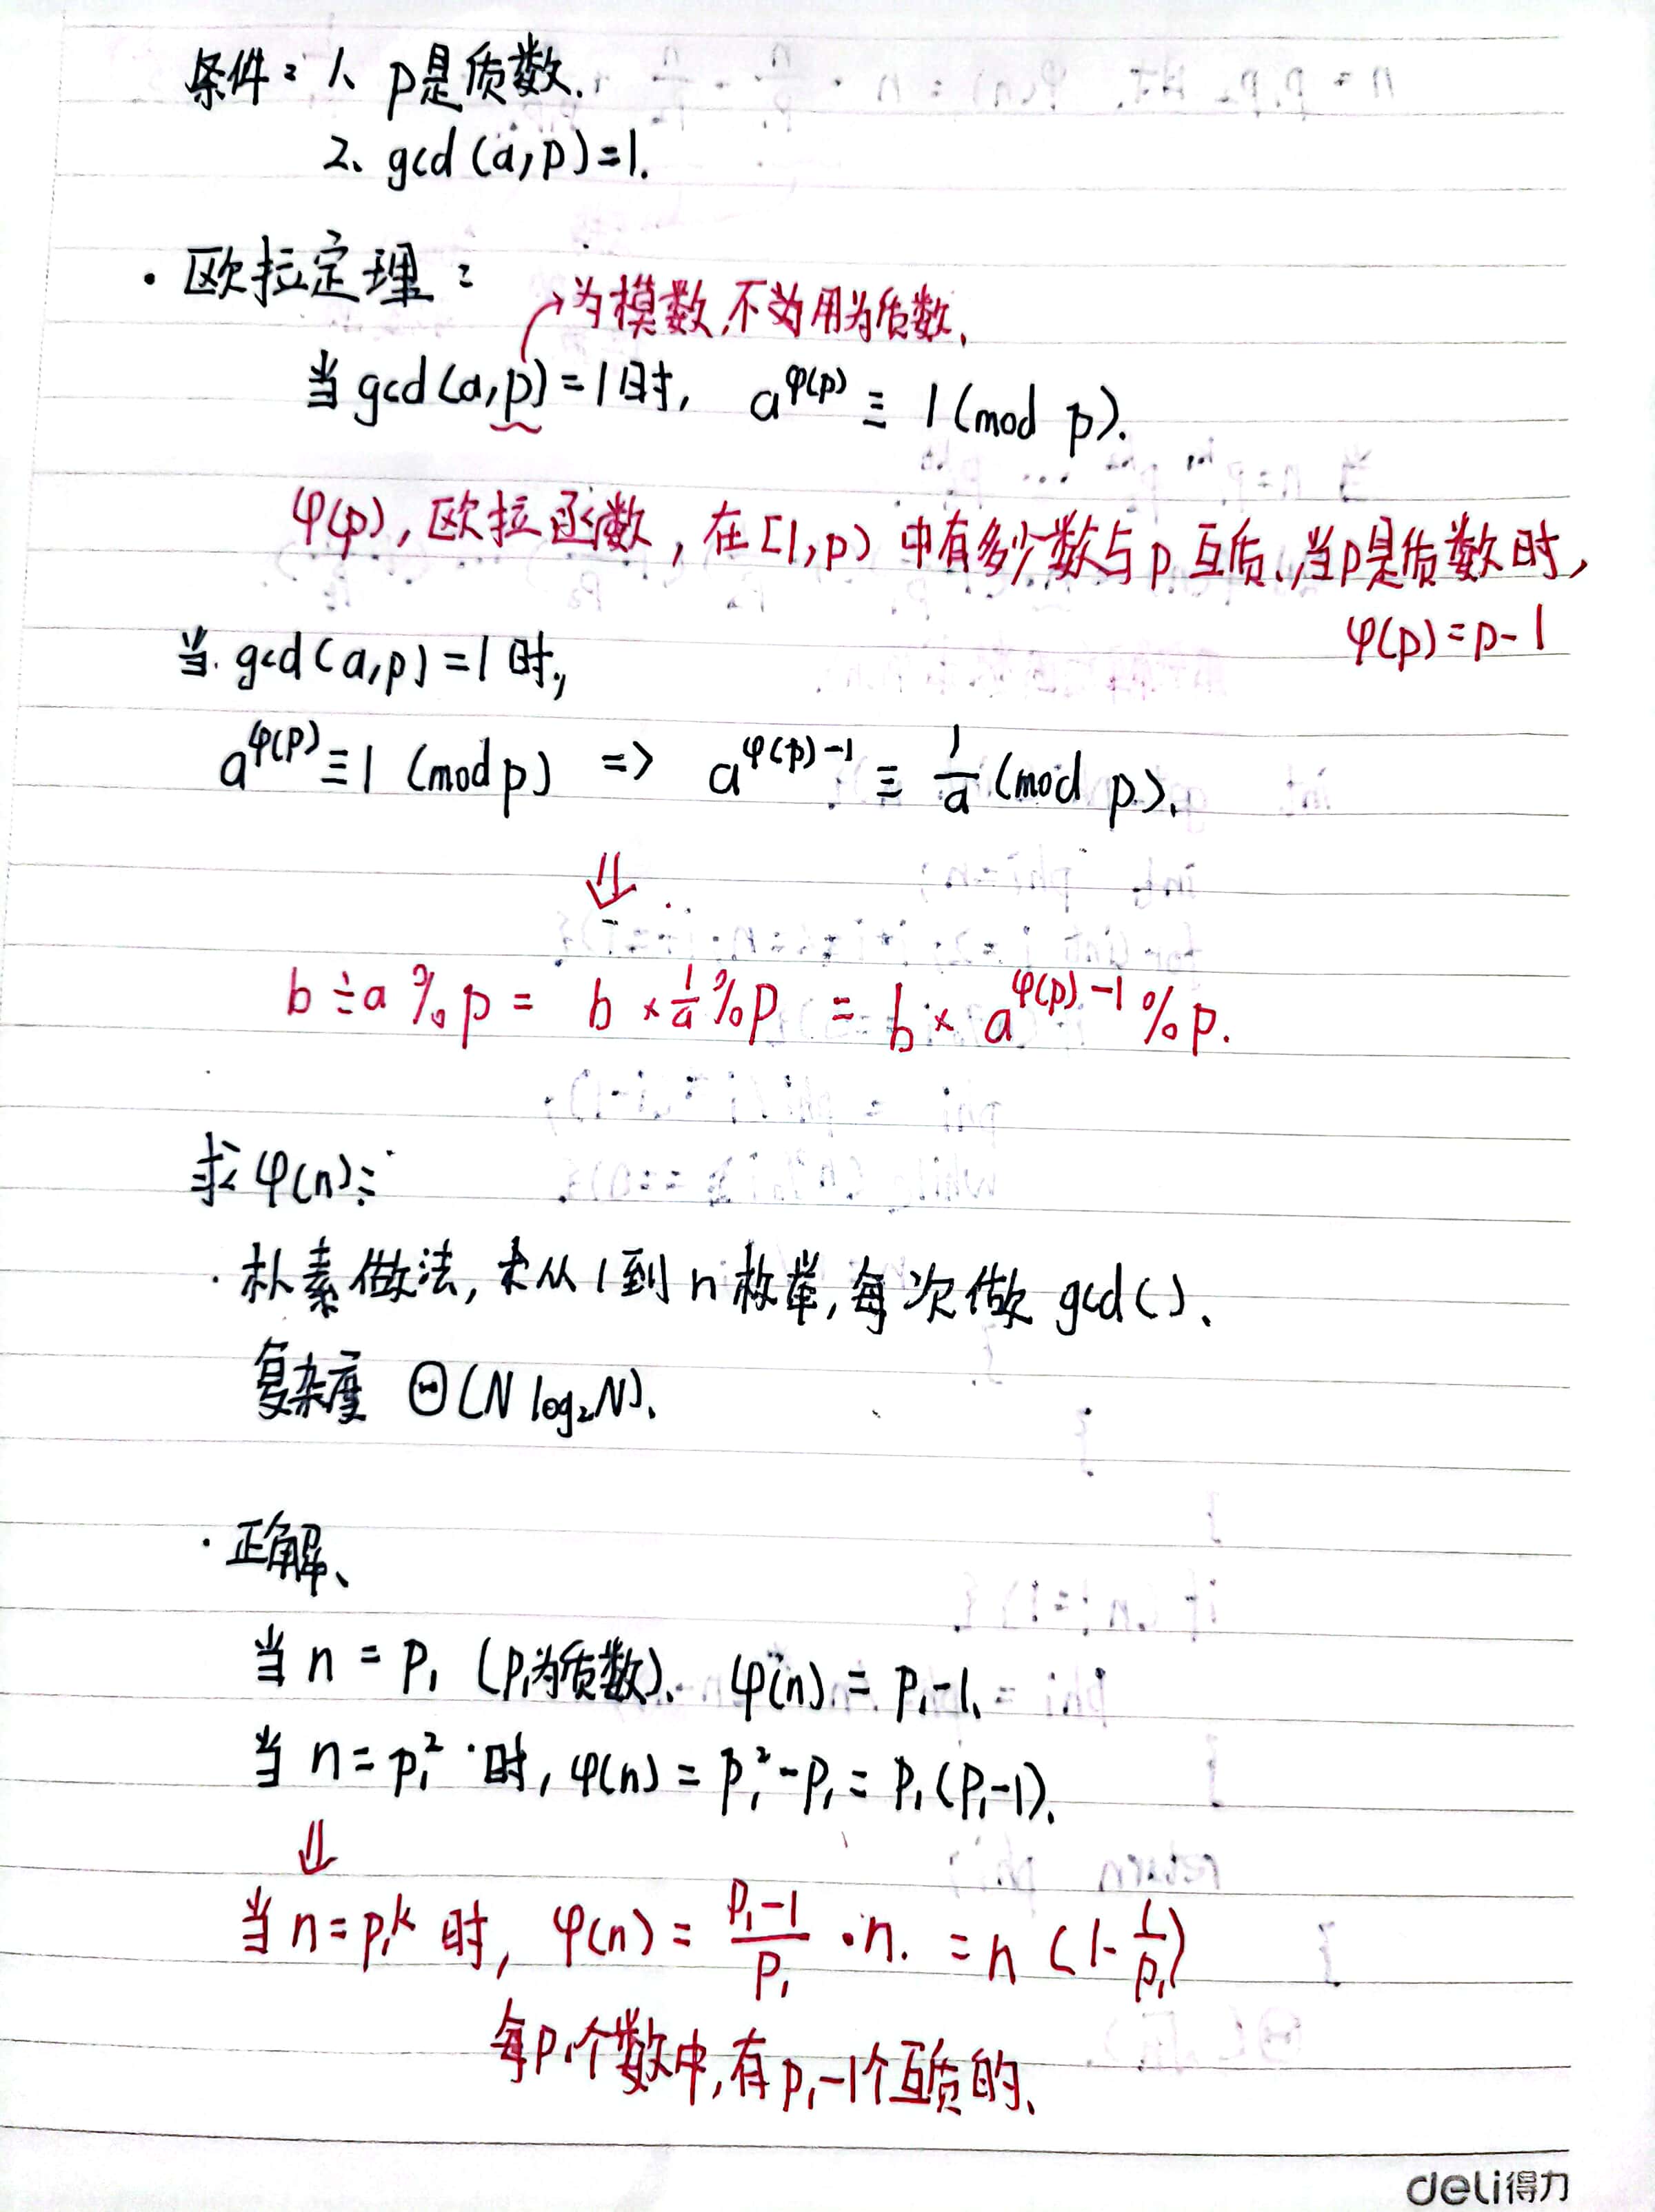 条件：1、p是质数.
2、gcd(a,p)=1.
·欧拉定理：
→为模数,不用为质数.
当gcd(a,p)=1时, a^φ(p) ≡ 1(mod p).
φ(p),欧拉函数,在[1,p)中有多少数与p互质.当p是质数时,
φ(p)=p-1
当gcd(a,p)=1时,
a^φ(p)≡1 (mod p) => a^φ(p)-1 ≡ 1/a (mod p).
⇓
b÷a%p = b×1/a%p = b×a^φ(p)-1%p.
求φ(n):
·朴素做法,从1到n枚举,每次做gcd()、
复杂度 Θ(N log₂N).
·正解、
当n=p₁(p₁为质数). φ(n)=p₁-1.
当n=p₁²时,φ(n)=p₁²-p₁=p₁(p₁-1).
⇓
当n=p₁^k时, φ(n)=(p₁-1)/p₁·n.=n(1-1/p₁)
每p₁个数中,有p₁-1个互质的、
deli得力